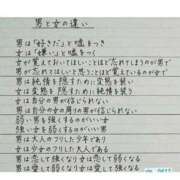 男と女の違い
男は「好きだ」と嘘をつき
女は「嫌い」と嘘をつく
女が覚えておいてほしいことほど忘れてしまうのが男で
男が忘れてほしいと思うことほど覚えているのが女で
男は純情を隠すために変態を装い
女は変態を隠すために純情を装う
男は自分の男が信じられない
女は自分の男の周りの女が信じられない
弱い男を強くするのが女で
強い女を弱くするのが男で
男は大人のフリした少年であり
女は少女のフリした大人である
男は恋して強くなり愛して弱くなる
女は恋して弱くなり愛して強くなる